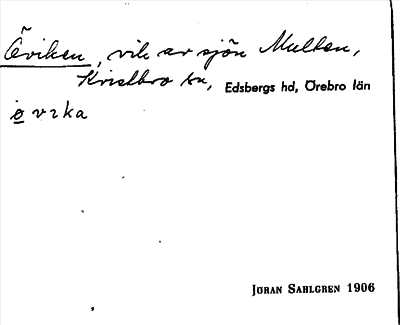 Öviken, vik av sjön Multen,
Kvistbro sn, Edsbergs hd, Örebro län
JÖRAN SAHLGREN 1906